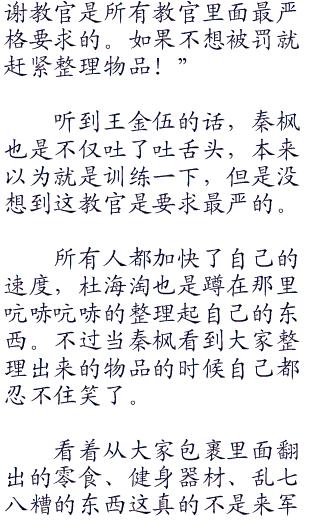 谢教官是所有教官里面最严
格要求的。如果不想被罚就
赶紧整理物品！”
听到王金伍的话，秦枫
也是不仅吐了吐舌头，本来
以为就是训练一下，但是没
想到这教官是要求最严的。
所有人都加快了自己的
速度，杜海淘也是蹲在那里
吭哧吭哧的整理起自己的东
西。不过当秦枫看到大家整
理出来的物品的时候自己都
忍不住笑了。
看着从大家包裹里面翻
出的零食、健身器材、乱七
八糟的东西这真的不是来军